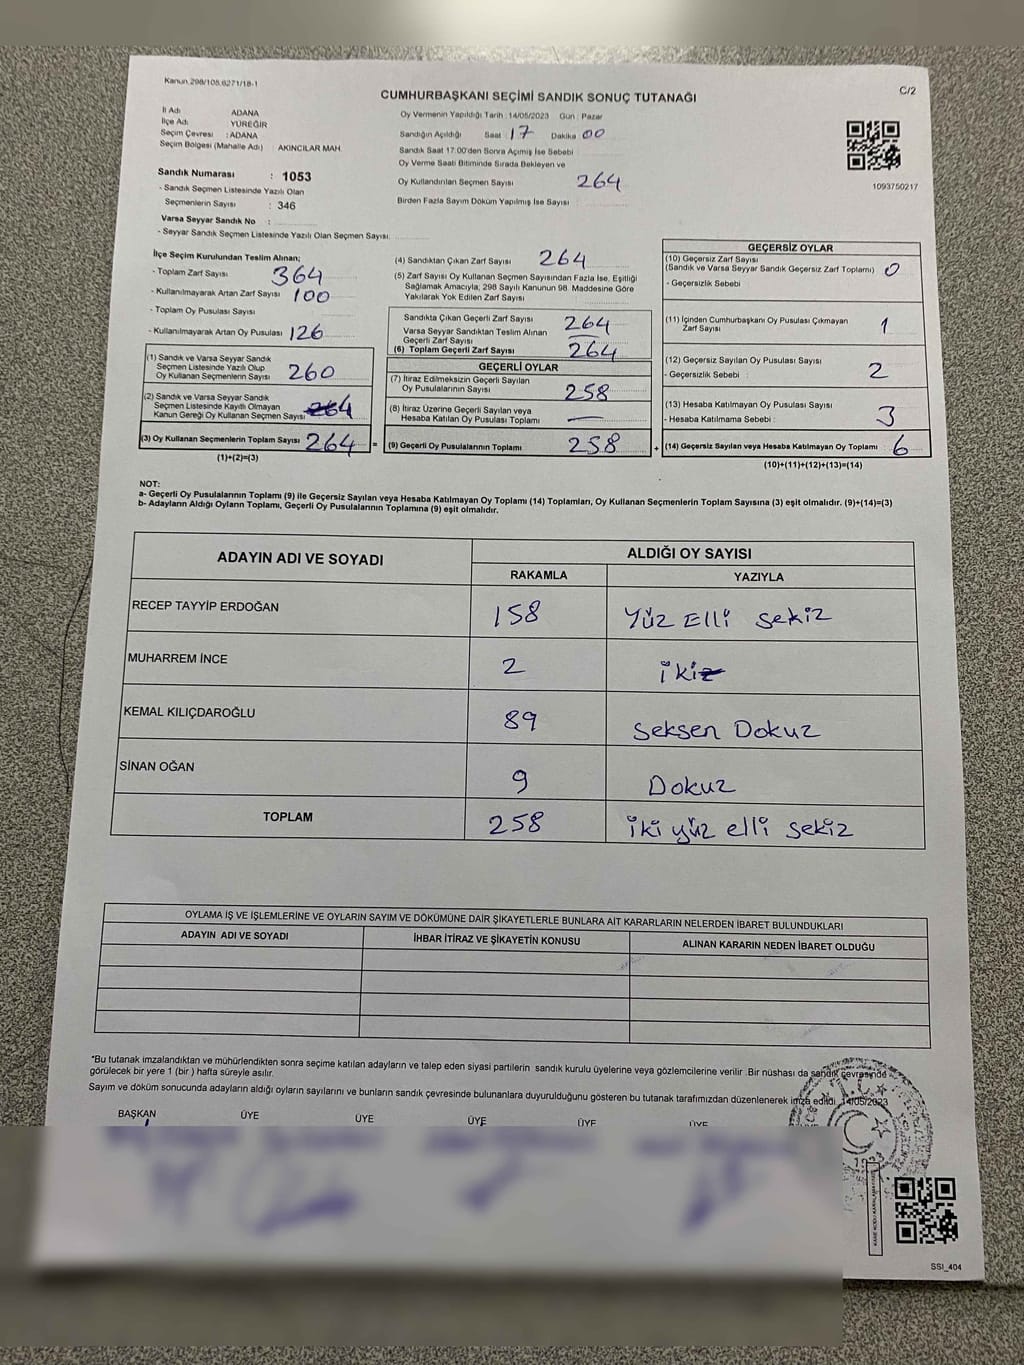 Kanun.298/105.6271/18-1
C/2
CUMHURBAŞKANI SEÇİMİ SANDIK SONUÇ TUTANAĞI
İl Adı : ADANA
İlçe Adı : YÜREĞİR
Seçim Çevresi : ADANA
Seçim Bölgesi (Mahalle Adı) : AKINCILAR MAH.
Sandık Numarası : 1053
- Sandık Seçmen Listesinde Yazılı Olan
Seçmenlerin Sayısı : 346
Varsa Seyyar Sandık No :
- Seyyar Sandık Seçmen Listesinde Yazılı Olan Seçmen Sayısı:
Oy Vermenin Yapıldığı Tarih : 14/05/2023 Gün : Pazar
Sandığın Açıldığı Saat : 17 Dakika 00
Sandık Saat 17:00'den Sonra Açımış İse Sebebi
Oy Verme Saati Bitiminde Sırada Bekleyen ve
Oy Kullandırılan Seçmen Sayısı 264
Birden Fazla Sayım Döküm Yapılmış İse Sayısı :
1093750217
İlçe Seçim Kurulundan Teslim Alınan;
- Toplam Zarf Sayısı 364
- Kullanılmayarak Artan Zarf Sayısı 100
- Toplam Oy Pusulası Sayısı
- Kullanılmayarak Artan Oy Pusulası 126
(1) Sandık ve Varsa Seyyar Sandık
Seçmen Listesinde Yazılı Olup
Oy Kullanan Seçmenlerin Sayısı 260
(2) Sandık ve Varsa Seyyar Sandık
Seçmen Listesinde Kayıtlı Olmayan
Kanun Gereği Oy Kullanan Seçmen Sayısı 4
(3) Oy Kullanan Seçmenlerin Toplam Sayısı 264 =
(1)+(2)=(3)
(4) Sandıktan Çıkan Zarf Sayısı 264
(5) Zarf Sayısı Oy Kullanan Seçmen Sayısından Fazla İse, Eşitliği
Sağlamak Amacıyla, 298 Sayılı Kanunun 98. Maddesine Göre
Yakılarak Yok Edilen Zarf Sayısı
Sandıkta Çıkan Geçerli Zarf Sayısı 264
Varsa Seyyar Sandıktan Teslim Alınan
Geçerli Zarf Sayısı
(6) Toplam Geçerli Zarf Sayısı 264
GEÇERLİ OYLAR
(7) İtiraz Edilmeksizin Geçerli Sayılan
Oy Pusulalarının Sayısı 258
(8) İtiraz Üzerine Geçerli Sayılan veya
Hesaba Katılan Oy Pusulası Toplamı —
(9) Geçerli Oy Pusulalarının Toplamı 258 +
GEÇERSİZ OYLAR
(10) Geçersiz Zarf Sayısı
(Sandık ve Varsa Seyyar Sandık Geçersiz Zarf Toplamı) 0
- Geçersizlik Sebebi
(11) İçinden Cumhurbaşkanı Oy Pusulası Çıkmayan
Zarf Sayısı 1
(12) Geçersiz Sayılan Oy Pusulası Sayısı
- Geçersizlik Sebebi : 2
(13) Hesaba Katılmayan Oy Pusulası Sayısı
- Hesaba Katılmama Sebebi : 3
(14) Geçersiz Sayılan veya Hesaba Katılmayan Oy Toplamı 6
(10)+(11)+(12)+(13)=(14)
NOT:
a- Geçerli Oy Pusulalarının Toplamı (9) ile Geçersiz Sayılan veya Hesaba Katılmayan Oy Toplamı (14) Toplamları, Oy Kullanan Seçmenlerin Toplam Sayısına (3) eşit olmalıdır. (9)+(14)=(3)
b- Adayların Aldığı Oyların Toplamı, Geçerli Oy Pusulalarının Toplamına (9) eşit olmalıdır.
ADAYIN ADI VE SOYADI ALDIĞI OY SAYISI
RAKAMLA YAZIYLA
RECEP TAYYİP ERDOĞAN 158 Yüz Elli Sekiz
MUHARREM İNCE 2 iki
KEMAL KILIÇDAROĞLU 89 Seksen Dokuz
SİNAN OĞAN 9 Dokuz
TOPLAM 258 iki yüz elli sekiz
OYLAMA İŞ VE İŞLEMLERİNE VE OYLARIN SAYIM VE DÖKÜMÜNE DAİR ŞİKAYETLERLE BUNLARA AİT KARARLARIN NELERDEN İBARET BULUNDUKLARI
ADAYIN ADI VE SOYADI İHBAR İTİRAZ VE ŞİKAYETİN KONUSU ALINAN KARARIN NEDEN İBARET OLDUĞU
"Bu tutanak imzalandıktan ve mühürlendikten sonra seçime katılan adayların ve talep eden siyasi partilerin sandık kurulu üyelerine veya gözlemcilerine verilir .Bir nüshası da sandık çevresinde
görülecek bir yere 1 (bir ) hafta süreyle asılır.
Sayım ve döküm sonucunda adayların aldığı oyların sayılarını ve bunların sandık çevresinde bulunanlara duyurulduğunu gösteren bu tutanak tarafımızdan düzenlenerek imza edildi. 14/05/2023
BAŞKAN ÜYE ÜYE ÜYE ÜYE ÜYE
T.C.
1923
SSI_404